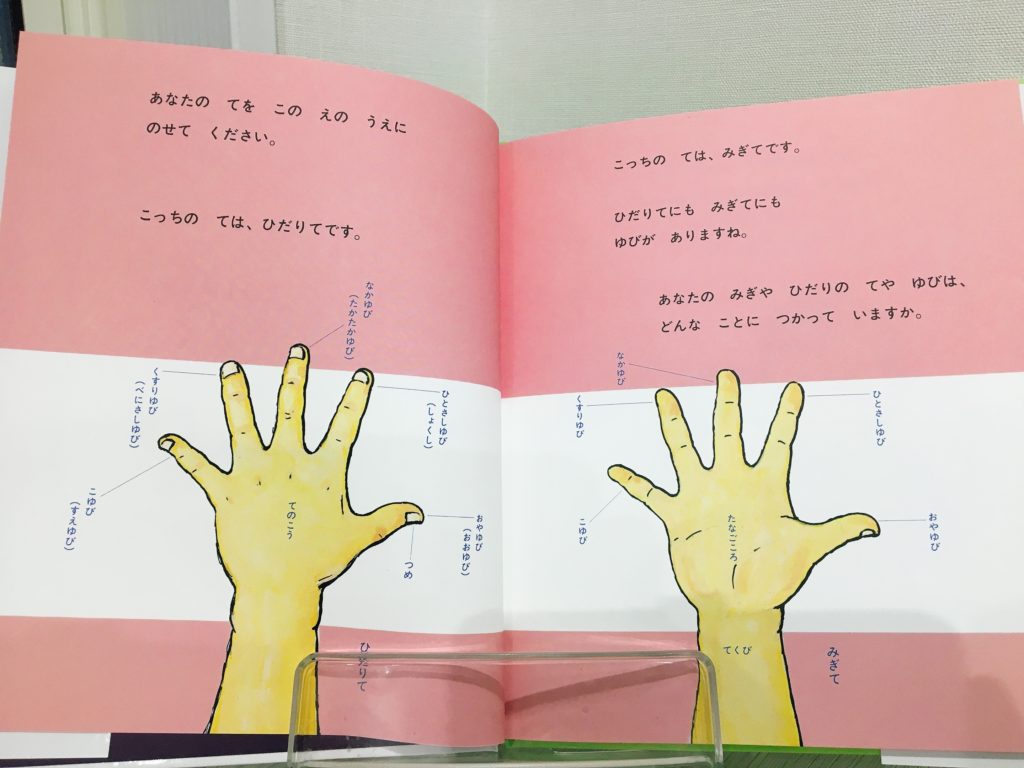 あなたの　てを　この　えの　うえに
のせて　ください。
こっちの　ては、ひだりてです。
なかゆび
（たかたかゆび）
くすりゆび
（べにさしゆび）
ひとさしゆび
（しょくし）
こゆび
（すえゆび）
てのこう
おやゆび
（おおゆび）
つめ
ひだりて
こっちの　ては、みぎてです。
ひだりてにも　みぎてにも
ゆびが　ありますね。
あなたの　みぎや　ひだりの　てや　ゆびは、
どんな　ことに　つかって　いますか。
なかゆび
くすりゆび
ひとさしゆび
こゆび
たなごころ
おやゆび
てくび
みぎて